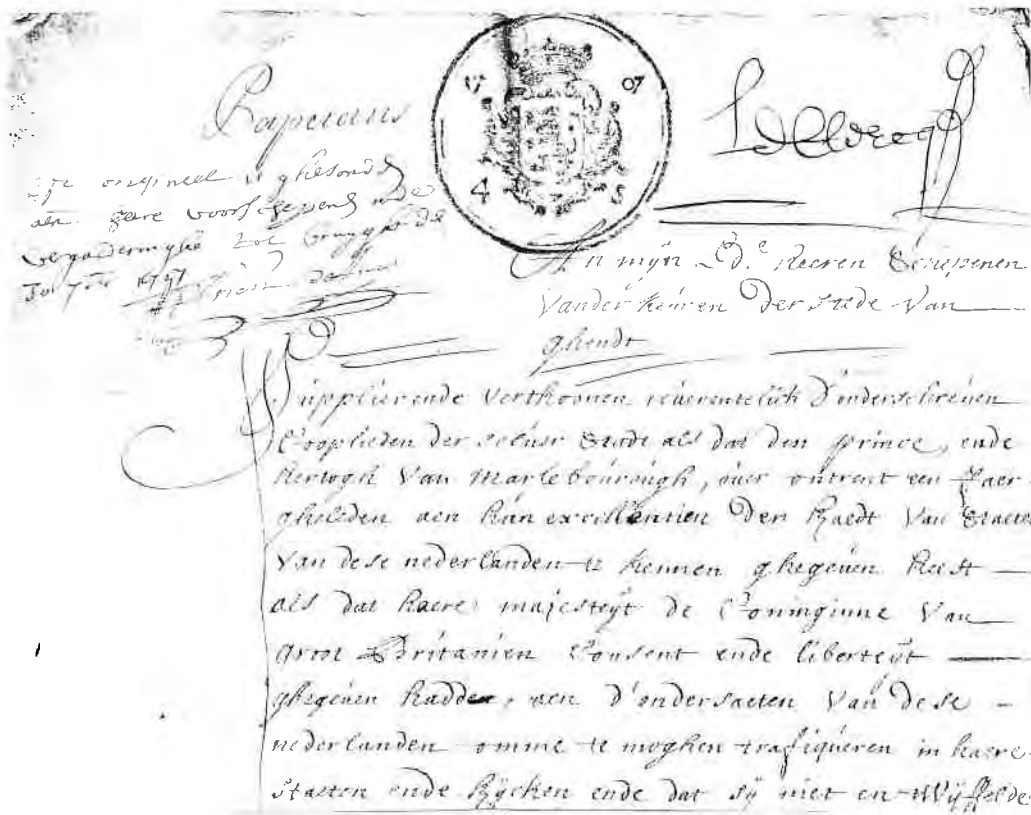 17 07
4 S
origineel is ghesonden
aen voors. schepenen
vergaderinghe tot Brugghe de
1707
An mijn Ed.e heeren Schepenen
vander keuren der stede van
ghendt
Supplierende verthoonen reverentelick d'onderschreven
Cooplieden der selver stadt als dat den prince, ende
hertogh van Marlebourough, over ontrent een Jaer
gheleden aen hun excellentien den Raedt van Staeten
van dese nederlanden te kennen ghegeven heeft
als dat haere majesteyt de Coninginne van
groot Britanien Consent ende liberteyt
ghegeven hadde, aen d'ondersaeten van dese
nederlanden omme te moghen trafiqueren in haere
staeten ende Rycken ende dat sy niet en twyffelde